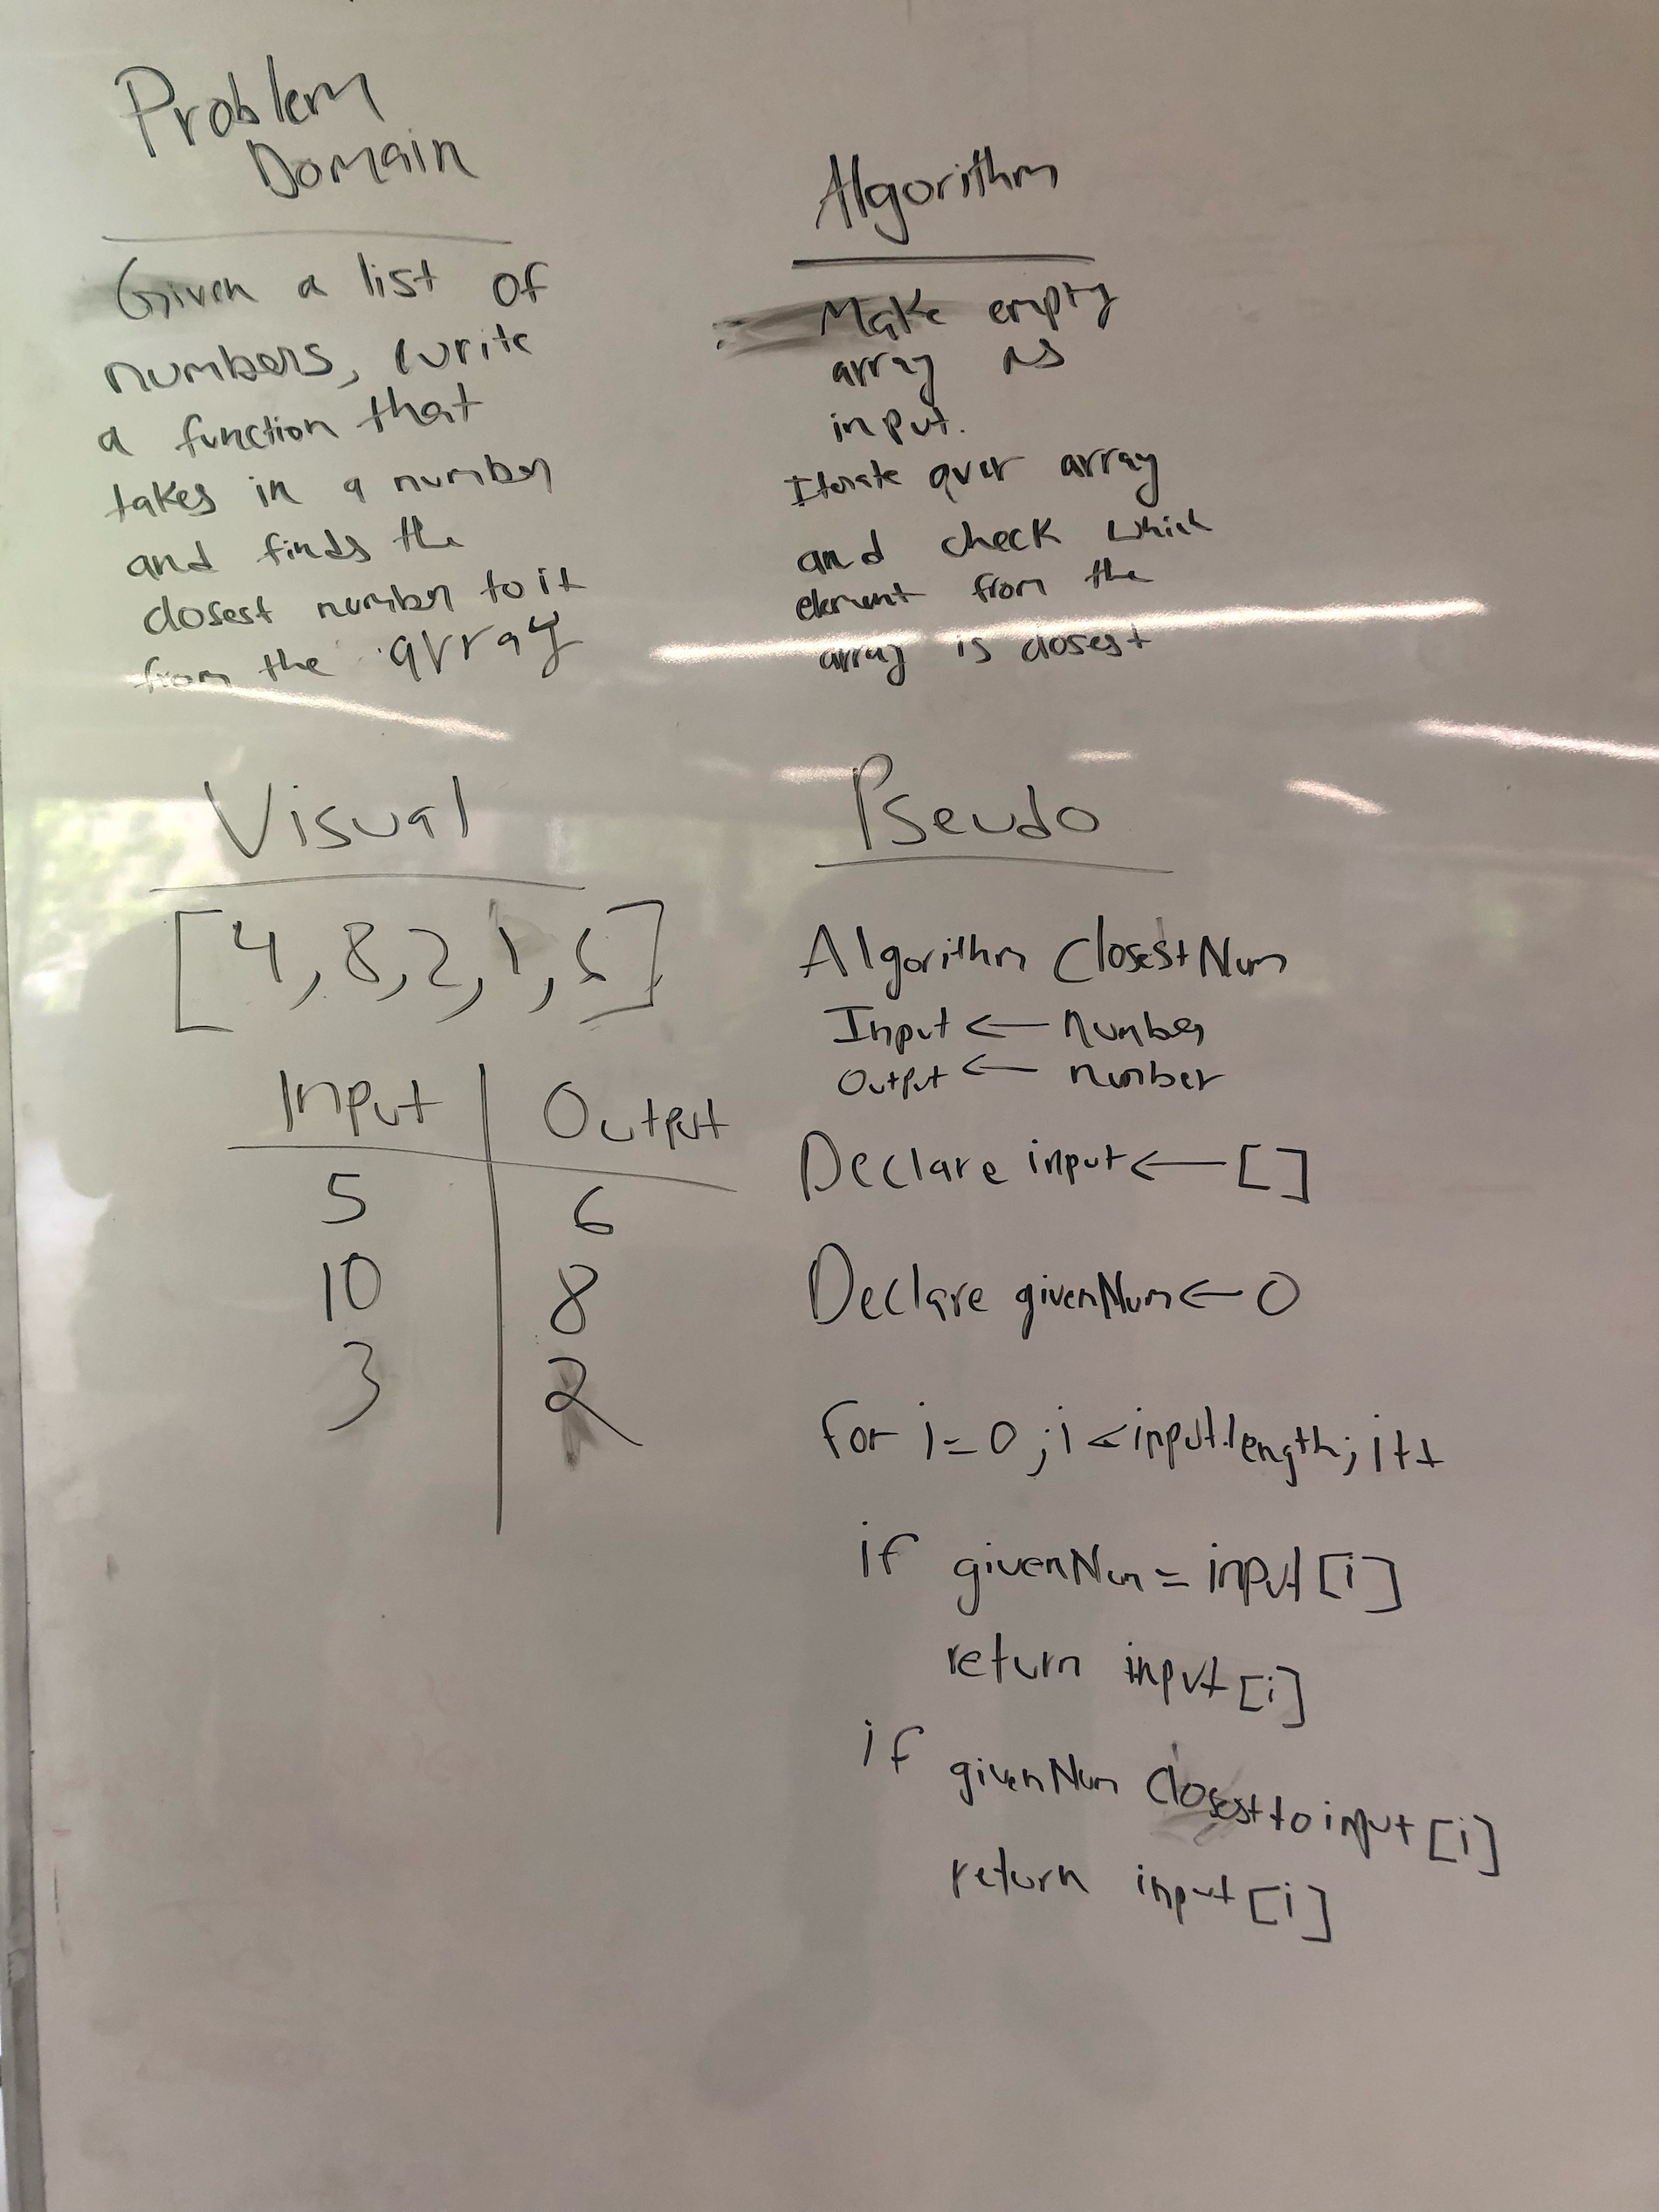 Problem
Domain
Given a list of
numbers, write
a function that
takes in a number
and finds the
closest number to it
from the array
Algorithm
Make empty
array as
input.
Iterate over array
and check which
element from the
array is closest
Visual
[4,8,2,1,6]
Input | Output
5 | 6
10 | 8
3 | 2
Pseudo
Algorithm ClosestNum
Input <— number
Output <— number
Declare input <— []
Declare givenNum <— 0
for i=0; i < input.length; i++
if givenNum = input[i]
return input[i]
if givenNum closest to input[i]
return input[i]